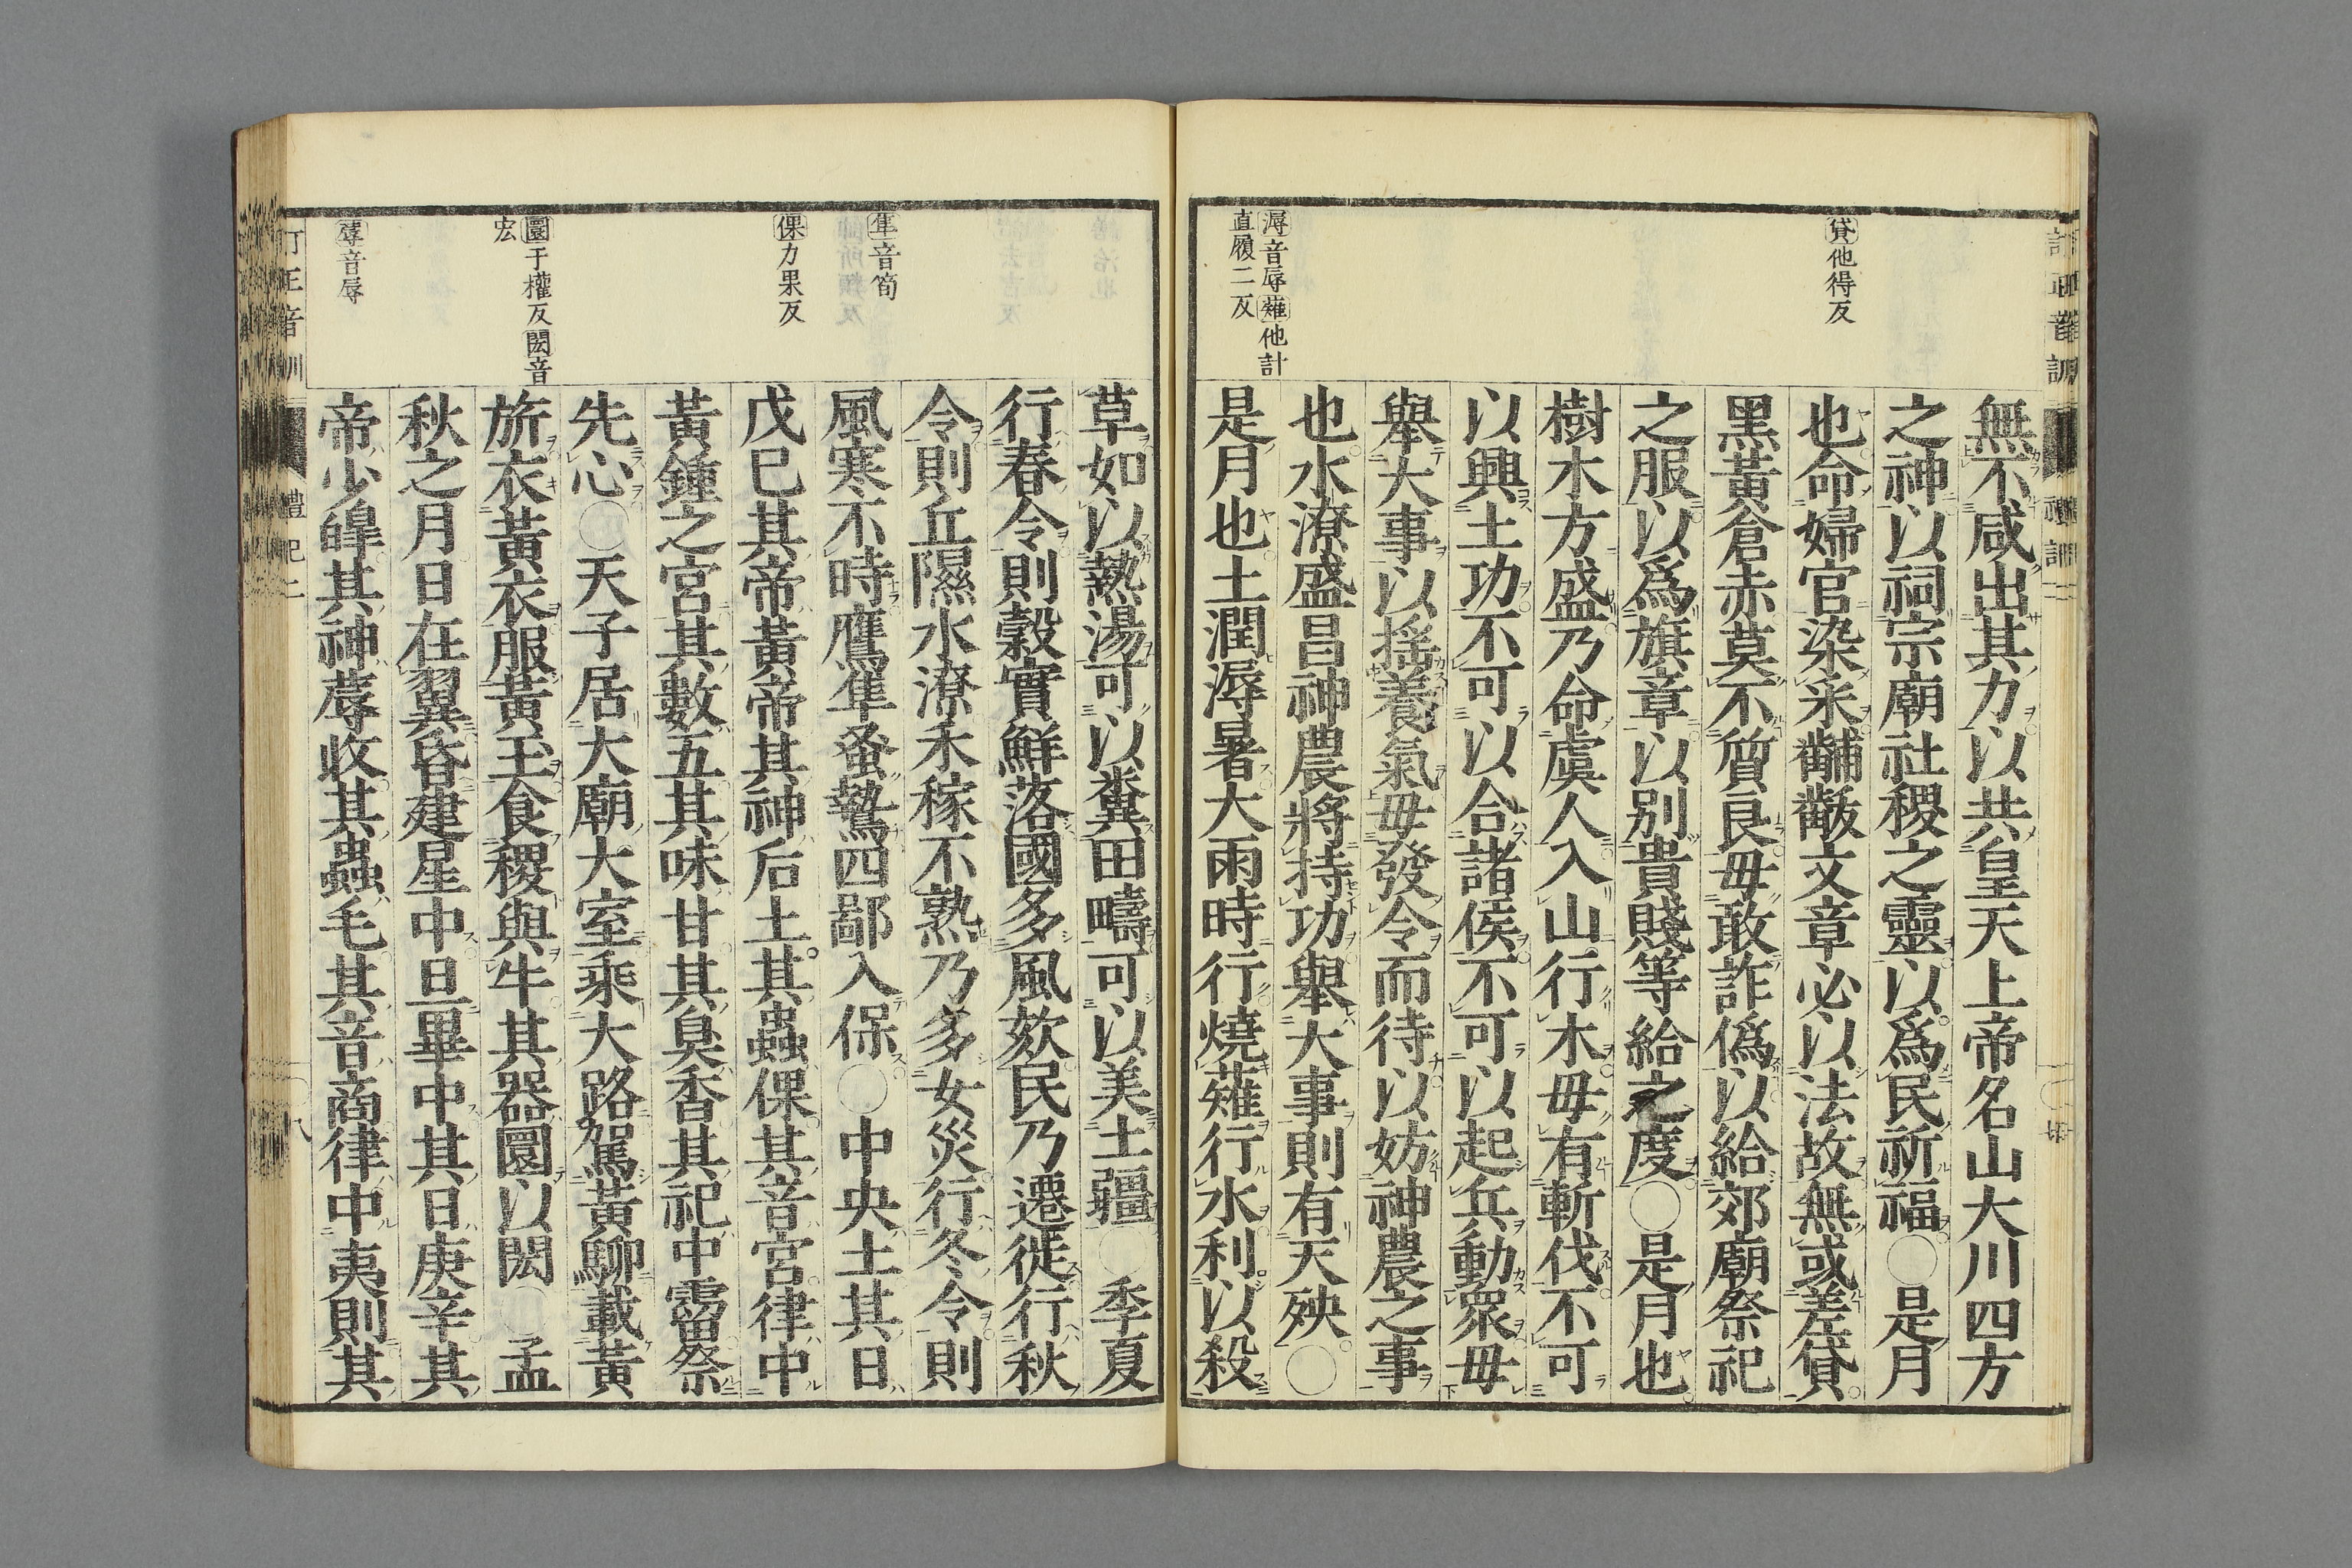 貸他得反
溽音辱薙他計
直履二反
無不咸出其力以共皇天上帝名山大川四方
之神以祠宗廟社稷之靈以爲民祈福○是月
也命婦官染采黼黻文章必以法故無或差貸
黑黃倉赤莫不質良毋敢詐僞以給郊廟祭祀
之服以爲旗章以別貴賤等給之度○是月也
樹木方盛乃命虞人入山行木毋有斬伐不可
以興土功不可以合諸侯不可以起兵動衆毋
舉大事以搖養氣毋發令而待以妨神農之事
也水潦盛昌神農將持功舉大事則有天殃○
是月也土潤溽暑大雨時行燒薙行水利以殺
隼音筍
倮力果反
圜于權反閎音
宏
蓐音辱
草如以熱湯可以糞田疇可以美土疆○季夏
行春令則穀實鮮落國多風欬民乃遷徙行秋
令則丘隰水潦禾稼不熟乃多女災行冬令則
風寒不時鷹隼蚤鷙四鄙入保○中央土其日
戊己其帝黃帝其神后土其蟲倮其音宮律中
黃鍾之宮其數五其味甘其臭香其祀中霤祭
先心○天子居大廟大室乘大路駕黃駵載黃
旂衣黃衣服黃玉食稷與牛其器圜以閎○孟
秋之月日在翼昏建星中旦畢中其日庚辛其
帝少皥其神蓐收其蟲毛其音商律中夷則其
訂正音訓 禮記二 八